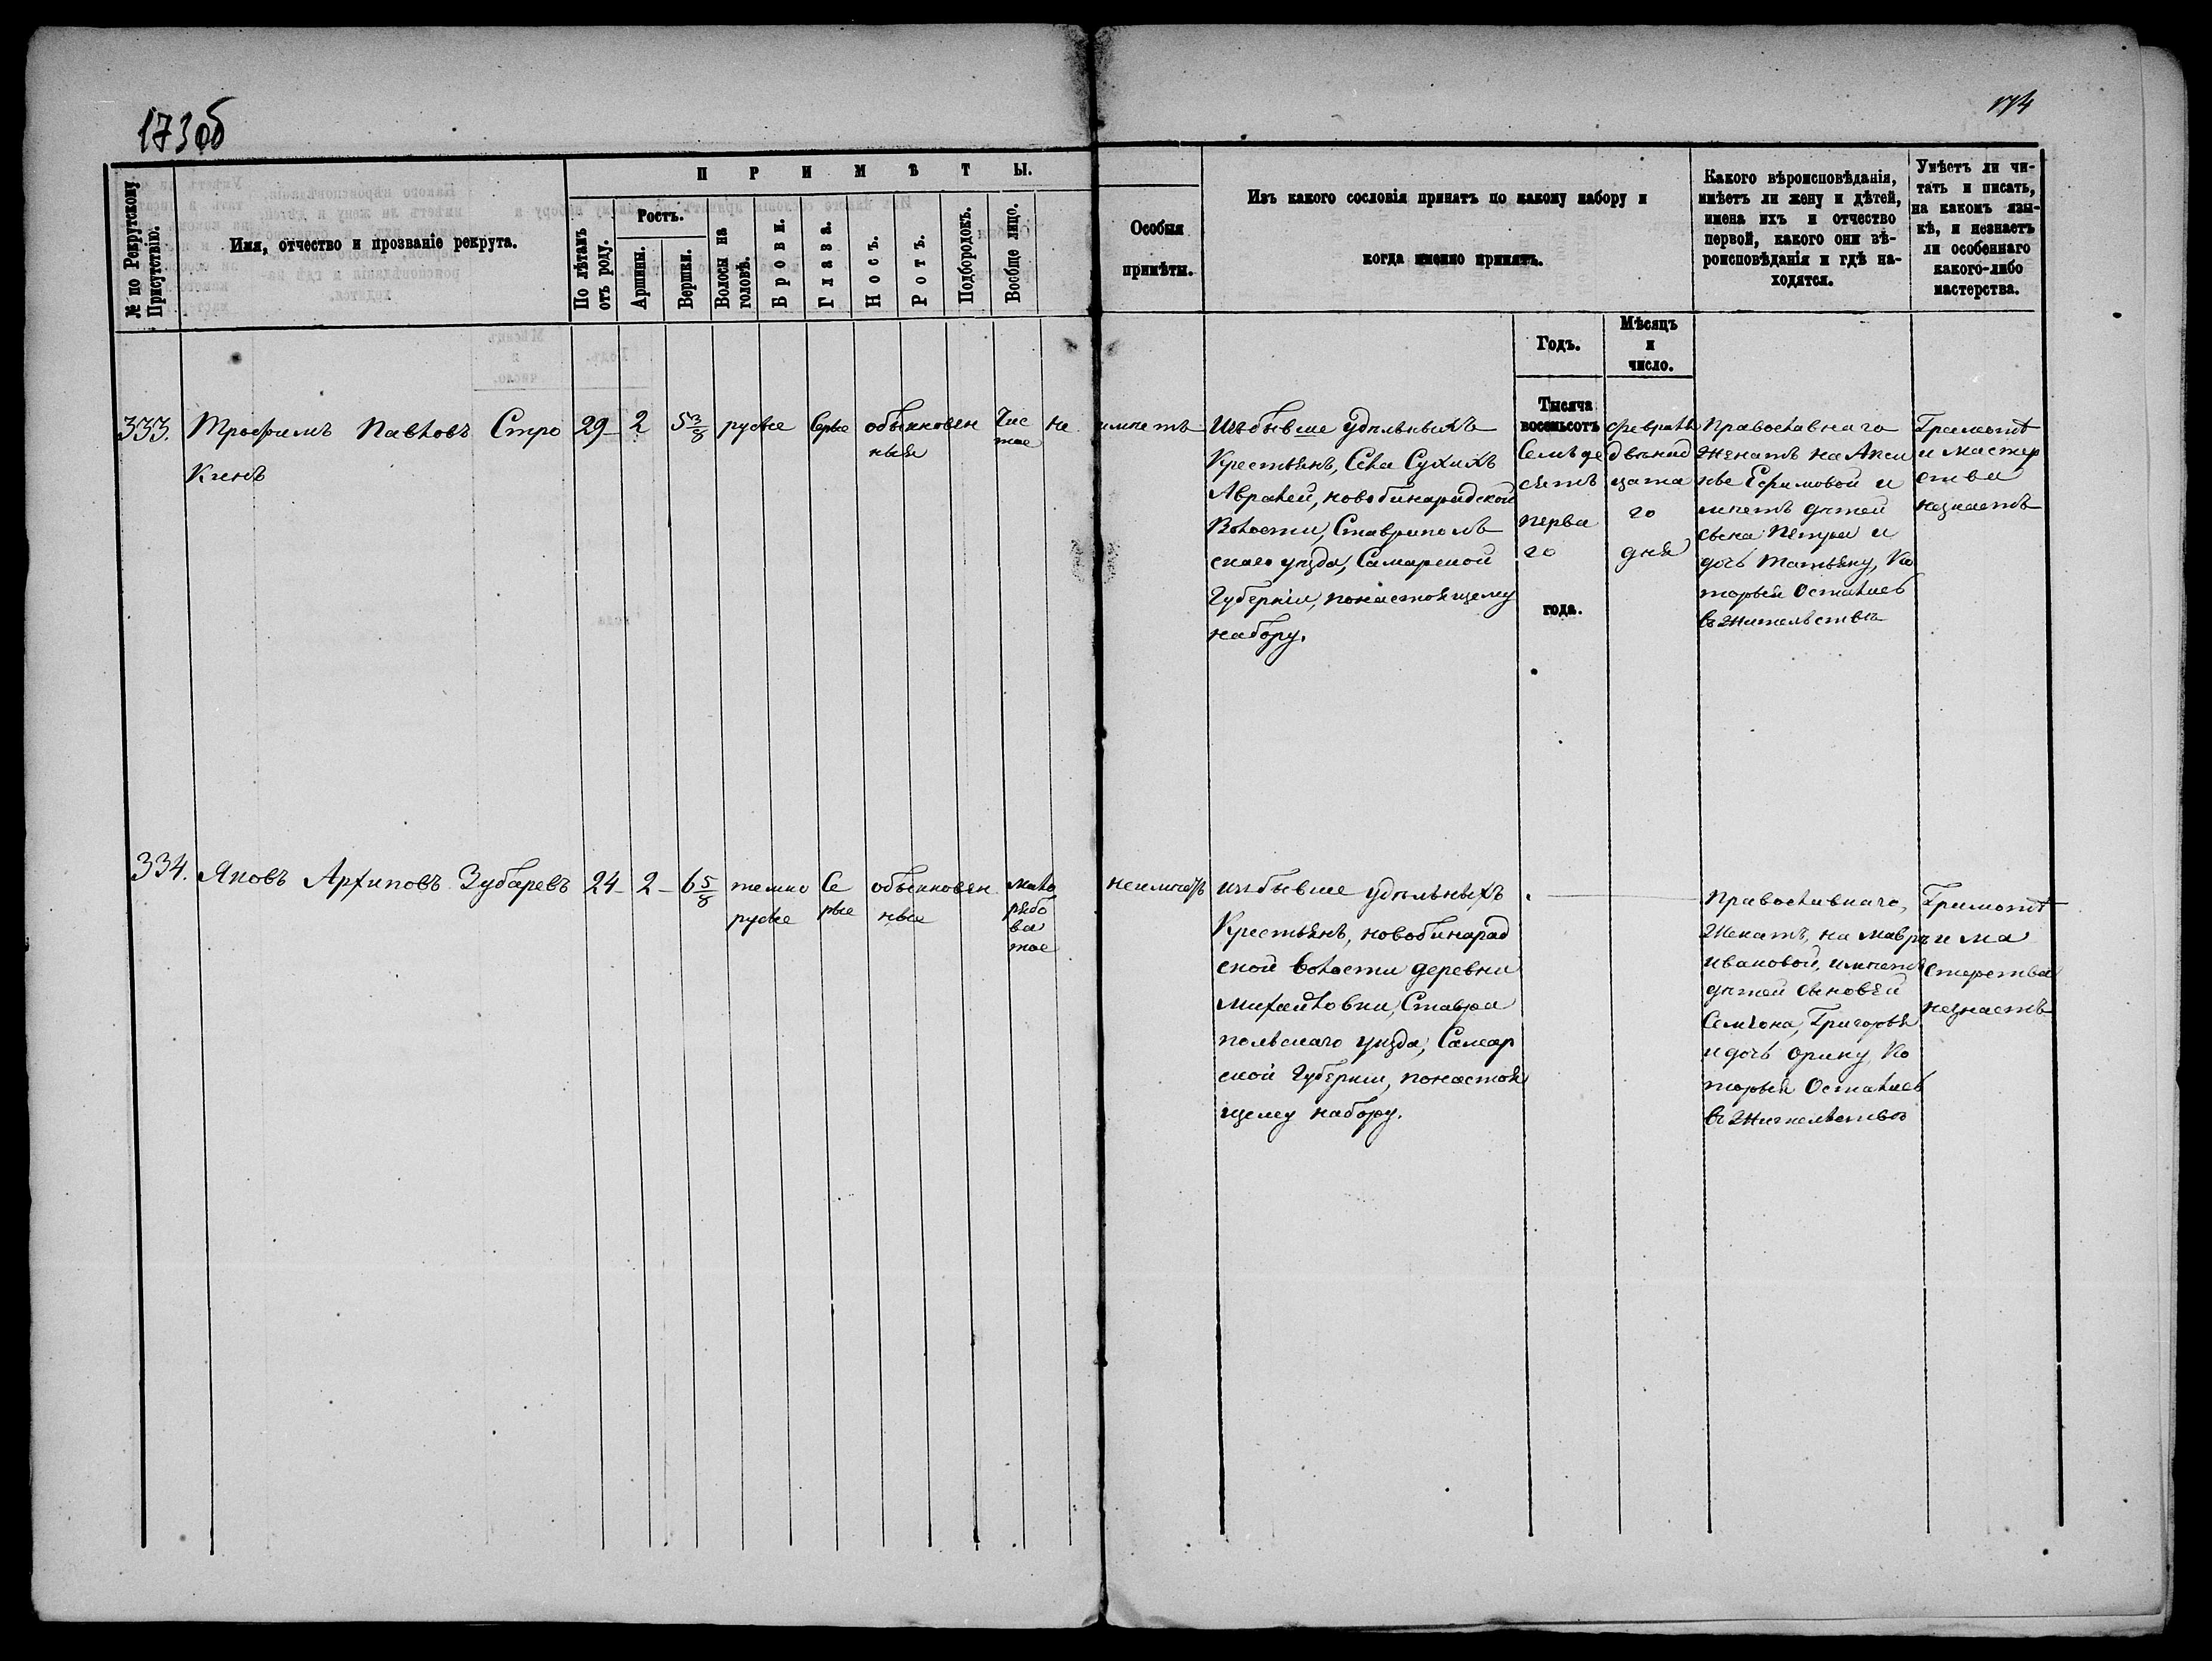 173 об
174
№ по Рекрутскому Присутствію.
Имя, отчество и прозваніе рекрута.
ПРИМѢТЫ.
По лѣтамъ отъ роду.
Ростъ.
Аршины.
Вершки.
Волосы на головѣ.
Брови.
Глаза.
Носъ.
Ротъ.
Подбородокъ.
Вообще лицо.
Особыя
примѣты.
Изъ какого сословія принятъ по какому набору и
когда именно принятъ.
Годъ.
Мѣсяцъ
и
число.
Какого вѣроисповѣданія,
имѣетъ ли жену и дѣтей,
имена ихъ и отчество
первой, какого они вѣ-
роисповѣданія и гдѣ на-
ходятся.
Умѣетъ ли чи-
тать и писать,
на какомъ язы-
кѣ, и незнаетъ
ли особеннаго
какого-либо
мастерства.
333.
Трофимъ Павловъ Стро
кинъ
29
2
5 3/8
русые
Серые
обыкновен
ныя
Чис
тое
не имѣетъ
Изъ бывше удѣльныхъ
Крестьянъ, Села Сухихъ
Авралей, новобинарадской
Волости, Ставрополь
скаго уѣзда, Самарской
Губерніи, понастоящему
набору.
Тысяча
восемьсотъ
Семьде
сятъ
перва
го
года.
февраля
двѣнад
цата
го
дня
Православнаго
Женатъ на Акси
нье Ефимовой и
имѣетъ дѣтей
сына Петра и
дочь Татьяну, Ко
торыи Остались
въ Жительствѣ
Грамотѣ
и мастер
ства
незнаетъ
334.
Яковъ Архиповъ Зубаревъ
24
2
6 5/8
темно
русые
Се
рые
обыкновен
ные
мало
рябо
ва
тое
неимѣетъ
изъ бывше удѣльныхъ
Крестьянъ, новобинарад
ской волости деревни
Михайловки, Ставро
польскаго уѣзда, Самар
ской Губерніи, понастоя
щему набору.
Православнаго,
Женатъ, на Маврѣ
Ивановой, имѣетъ
дѣтей сыновей
Семіона, Григорья
и дочь Орину, Ко
торыи Остались
въ Жительствѣ
Грамотѣ
и ма
стерства
незнаетъ